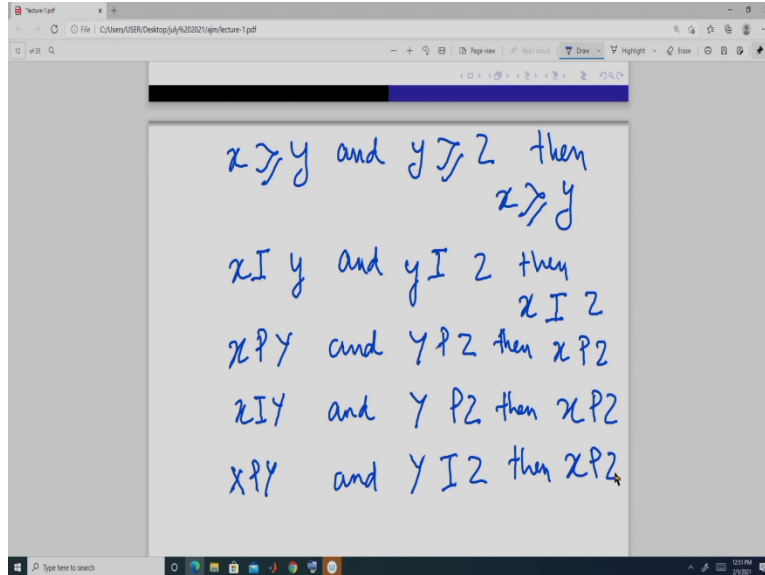 lecture-1.pdf
File | C:/Users/USER/Desktop/july%202021/ajm/lecture-1.pdf
12 of 35
Page view | Read aloud Draw Highlight Erase
x ≿ y and y ≿ z then
x ≿ y
x I y and y I z then
x I z
x P y and y P z then x P z
x I y and y P z then x P z
x P y and y I z then x P z
Type here to search
12:51 PM
2/5/2021